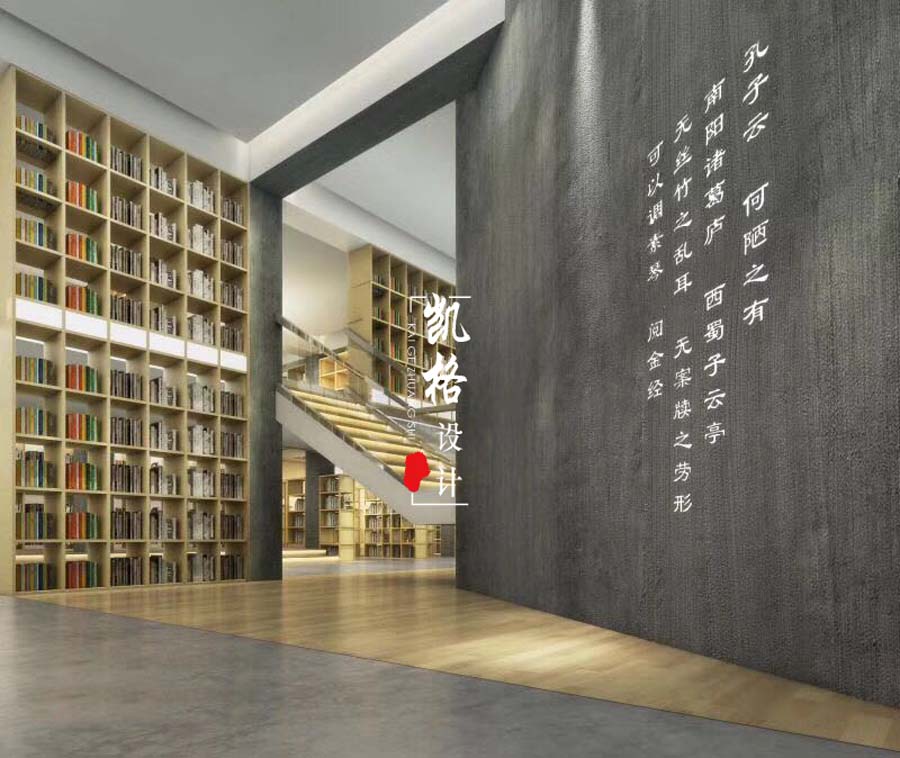 孔子云 何陋之有
南阳诸葛庐 西蜀子云亭
无丝竹之乱耳 无案牍之劳形
可以调素琴 阅金经
凯格设计
KAI GE ZHUANG SHI